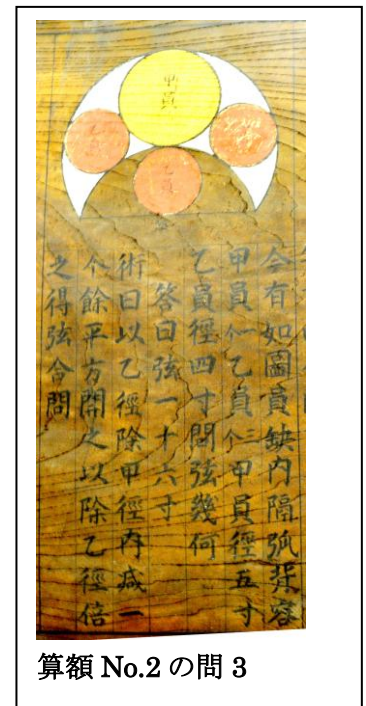 甲員
乙員
乙員
乙員
今有如圖員缺内隔弧挟容
甲員个一乙員个三甲員徑五寸
乙員徑四寸問弦幾何
答曰弦一十六寸
術曰以乙徑除甲徑内减一
个餘平方開之以除乙徑倍
之得弦合問
算額 No.2 の問 3